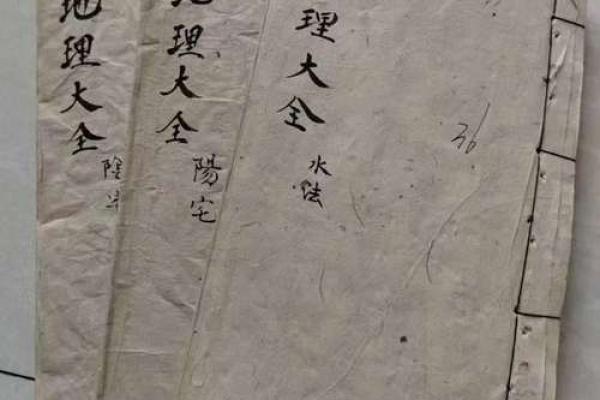 理大全
水法
36
地理大全
陽宅
地理大全
陰